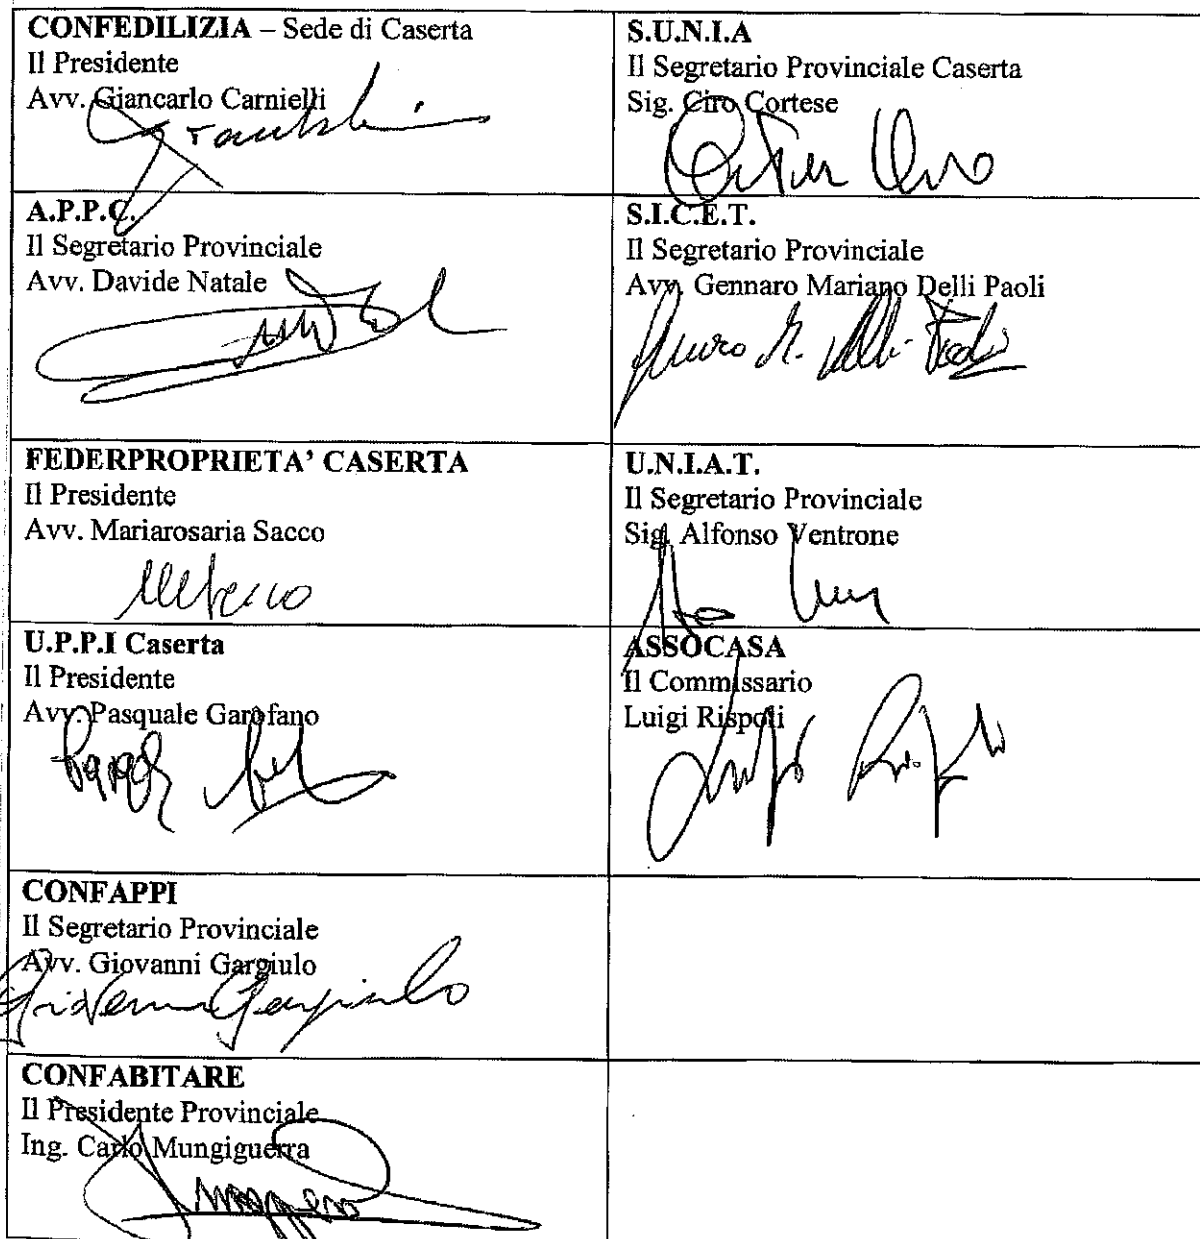 CONFEDILIZIA – Sede di Caserta
Il Presidente
Avv. Giancarlo Carnielli
S.U.N.I.A
Il Segretario Provinciale Caserta
Sig. Ciro Cortese
A.P.P.C.
Il Segretario Provinciale
Avv. Davide Natale
S.I.C.E.T.
Il Segretario Provinciale
Avv. Gennaro Mariano Delli Paoli
FEDERPROPRIETA’ CASERTA
Il Presidente
Avv. Mariarosaria Sacco
U.N.I.A.T.
Il Segretario Provinciale
Sig. Alfonso Ventrone
U.P.P.I Caserta
Il Presidente
Avv. Pasquale Garofano
ASSOCASA
Il Commissario
Luigi Rispoli
CONFAPPI
Il Segretario Provinciale
Avv. Giovanni Gargiulo
Giovanni Gargiulo
CONFABITARE
Il Presidente Provinciale
Ing. Carlo Mungiguerra